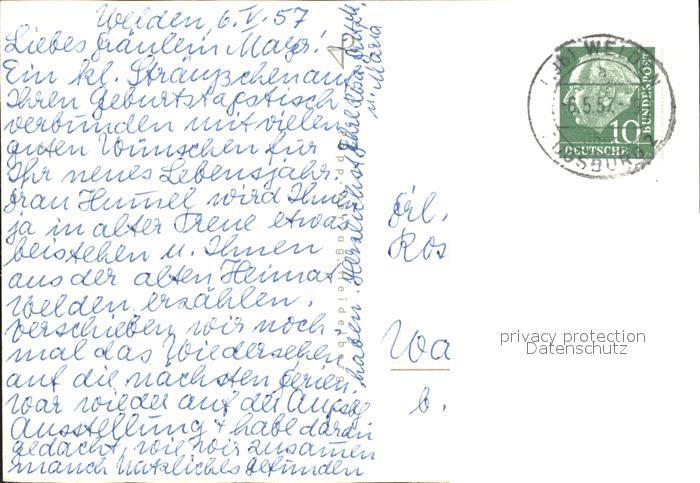 Welden, 6. V. 57
Liebes Fräulein Mayr!
Ein kl. Sträußchen auf
Ihren Geburtstagstisch
verbunden mit vielen
guten Wünschen für
Ihr neues Lebensjahr.
Frau Hummel wird Ihnen
ja in alter Treue etwas
beistehen u. Ihnen
aus der alten Heimat
Welden erzählen.
Verschieben wir noch-
mal das Wiedersehen
auf die nächsten Ferien.
War wieder auf der Augsb.
Ausstellung + habe daran
gedacht, wie wir zusammen
manch Nützliches gefunden
haben. Herzlichst Ihre
u. Maria
Frl.
Ros
Wa
b.
WELDEN
6.5.57
10
DEUTSCHE
BUNDESPOST
privacy protection
Datenschutz